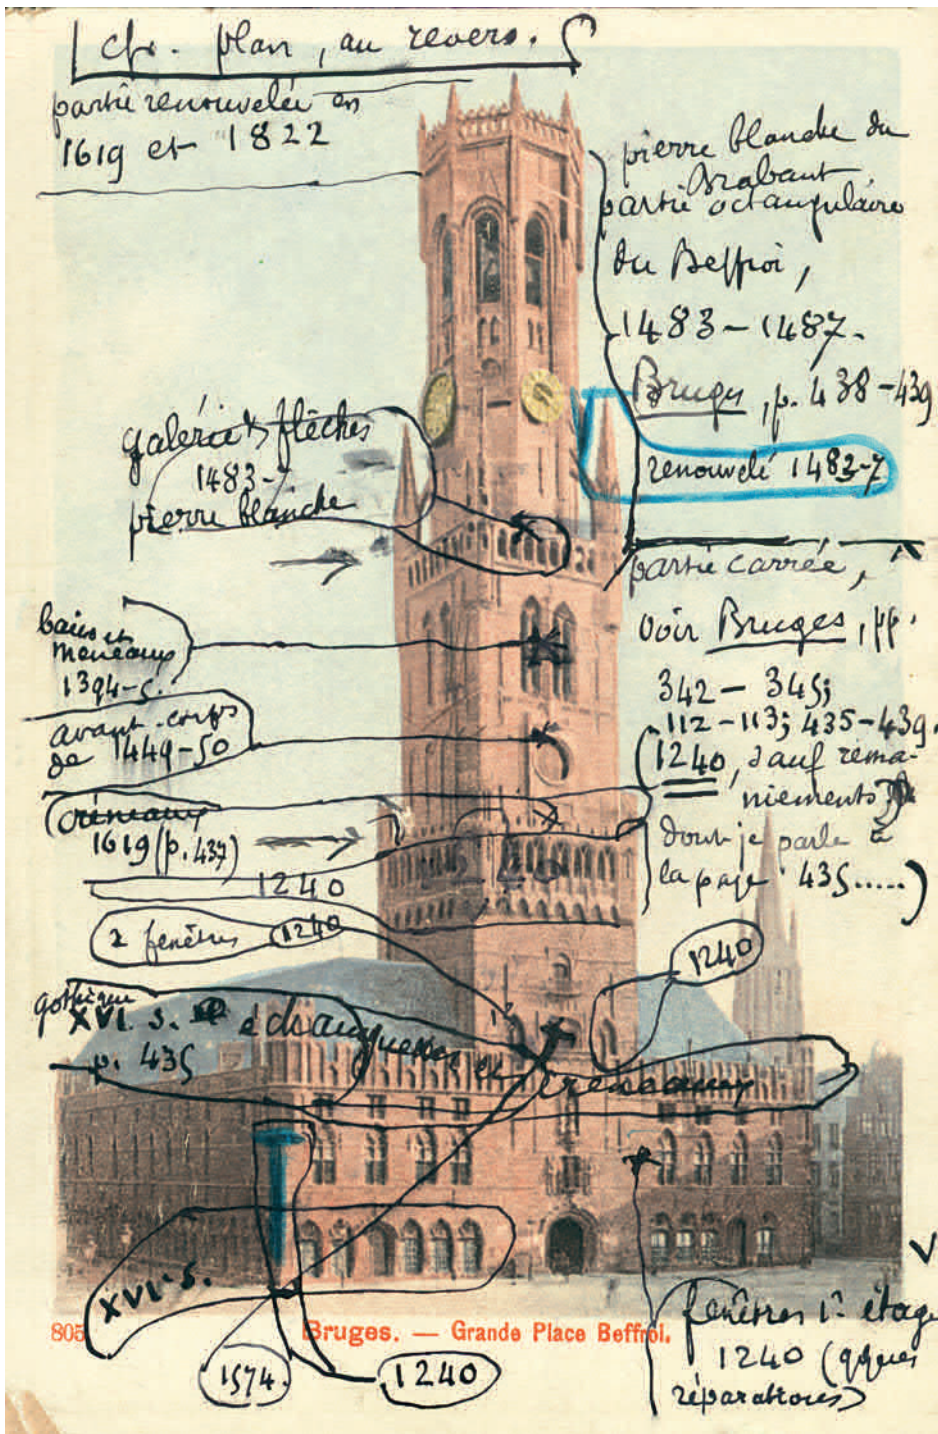 cfr. plan, au revers.
partie renouvelée en
1619 et 1822
pierre blanche du
Brabant
partie octangulaire
du Beffroi,
1483-1487.
Bruges, p. 438-439
renouvelé 1483-7
galerie & flèches
1483-7
pierre blanche
partie carrée,
voir Bruges, pp.
342-345;
112-113; 435-439.
(1240, sauf rema-
niements
dont je parle à
la page 435.....)
baies et
meneaux
1394-5.
avant-corps
de 1449-50
créneaux
1619 (p. 437)
1240
2 fenêtres 1240
1240
gothique
XVI. s. échauguettes et créneaux
p. 435
XVI s.
fenêtres 1r étage
1240 (qques
réparations)
805 Bruges. — Grande Place Beffroi.
1574.
1240